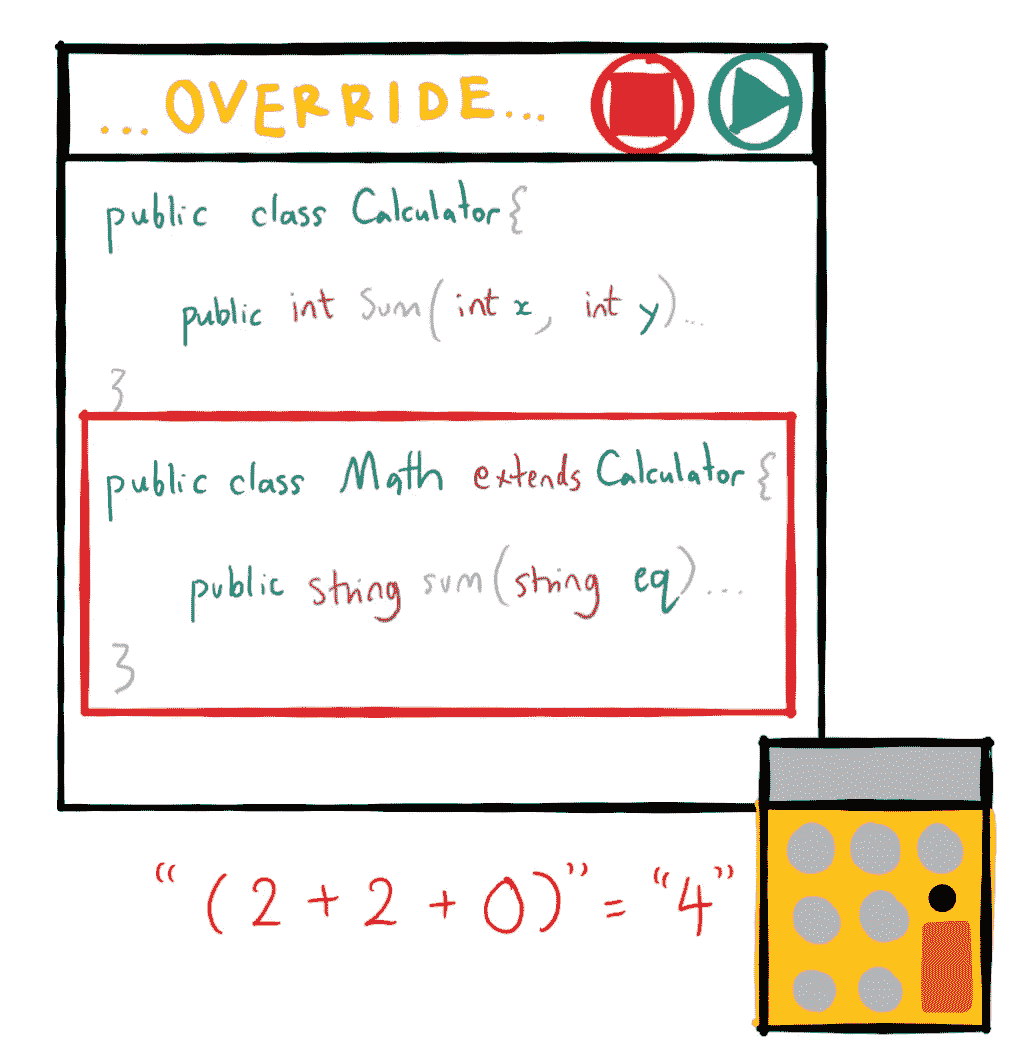 ...OVERRIDE...
public class Calculator{
public int Sum(int x, int y)...
}
public class Math extends Calculator{
public string sum(string eq)...
}
“(2+2+0)”=“4”